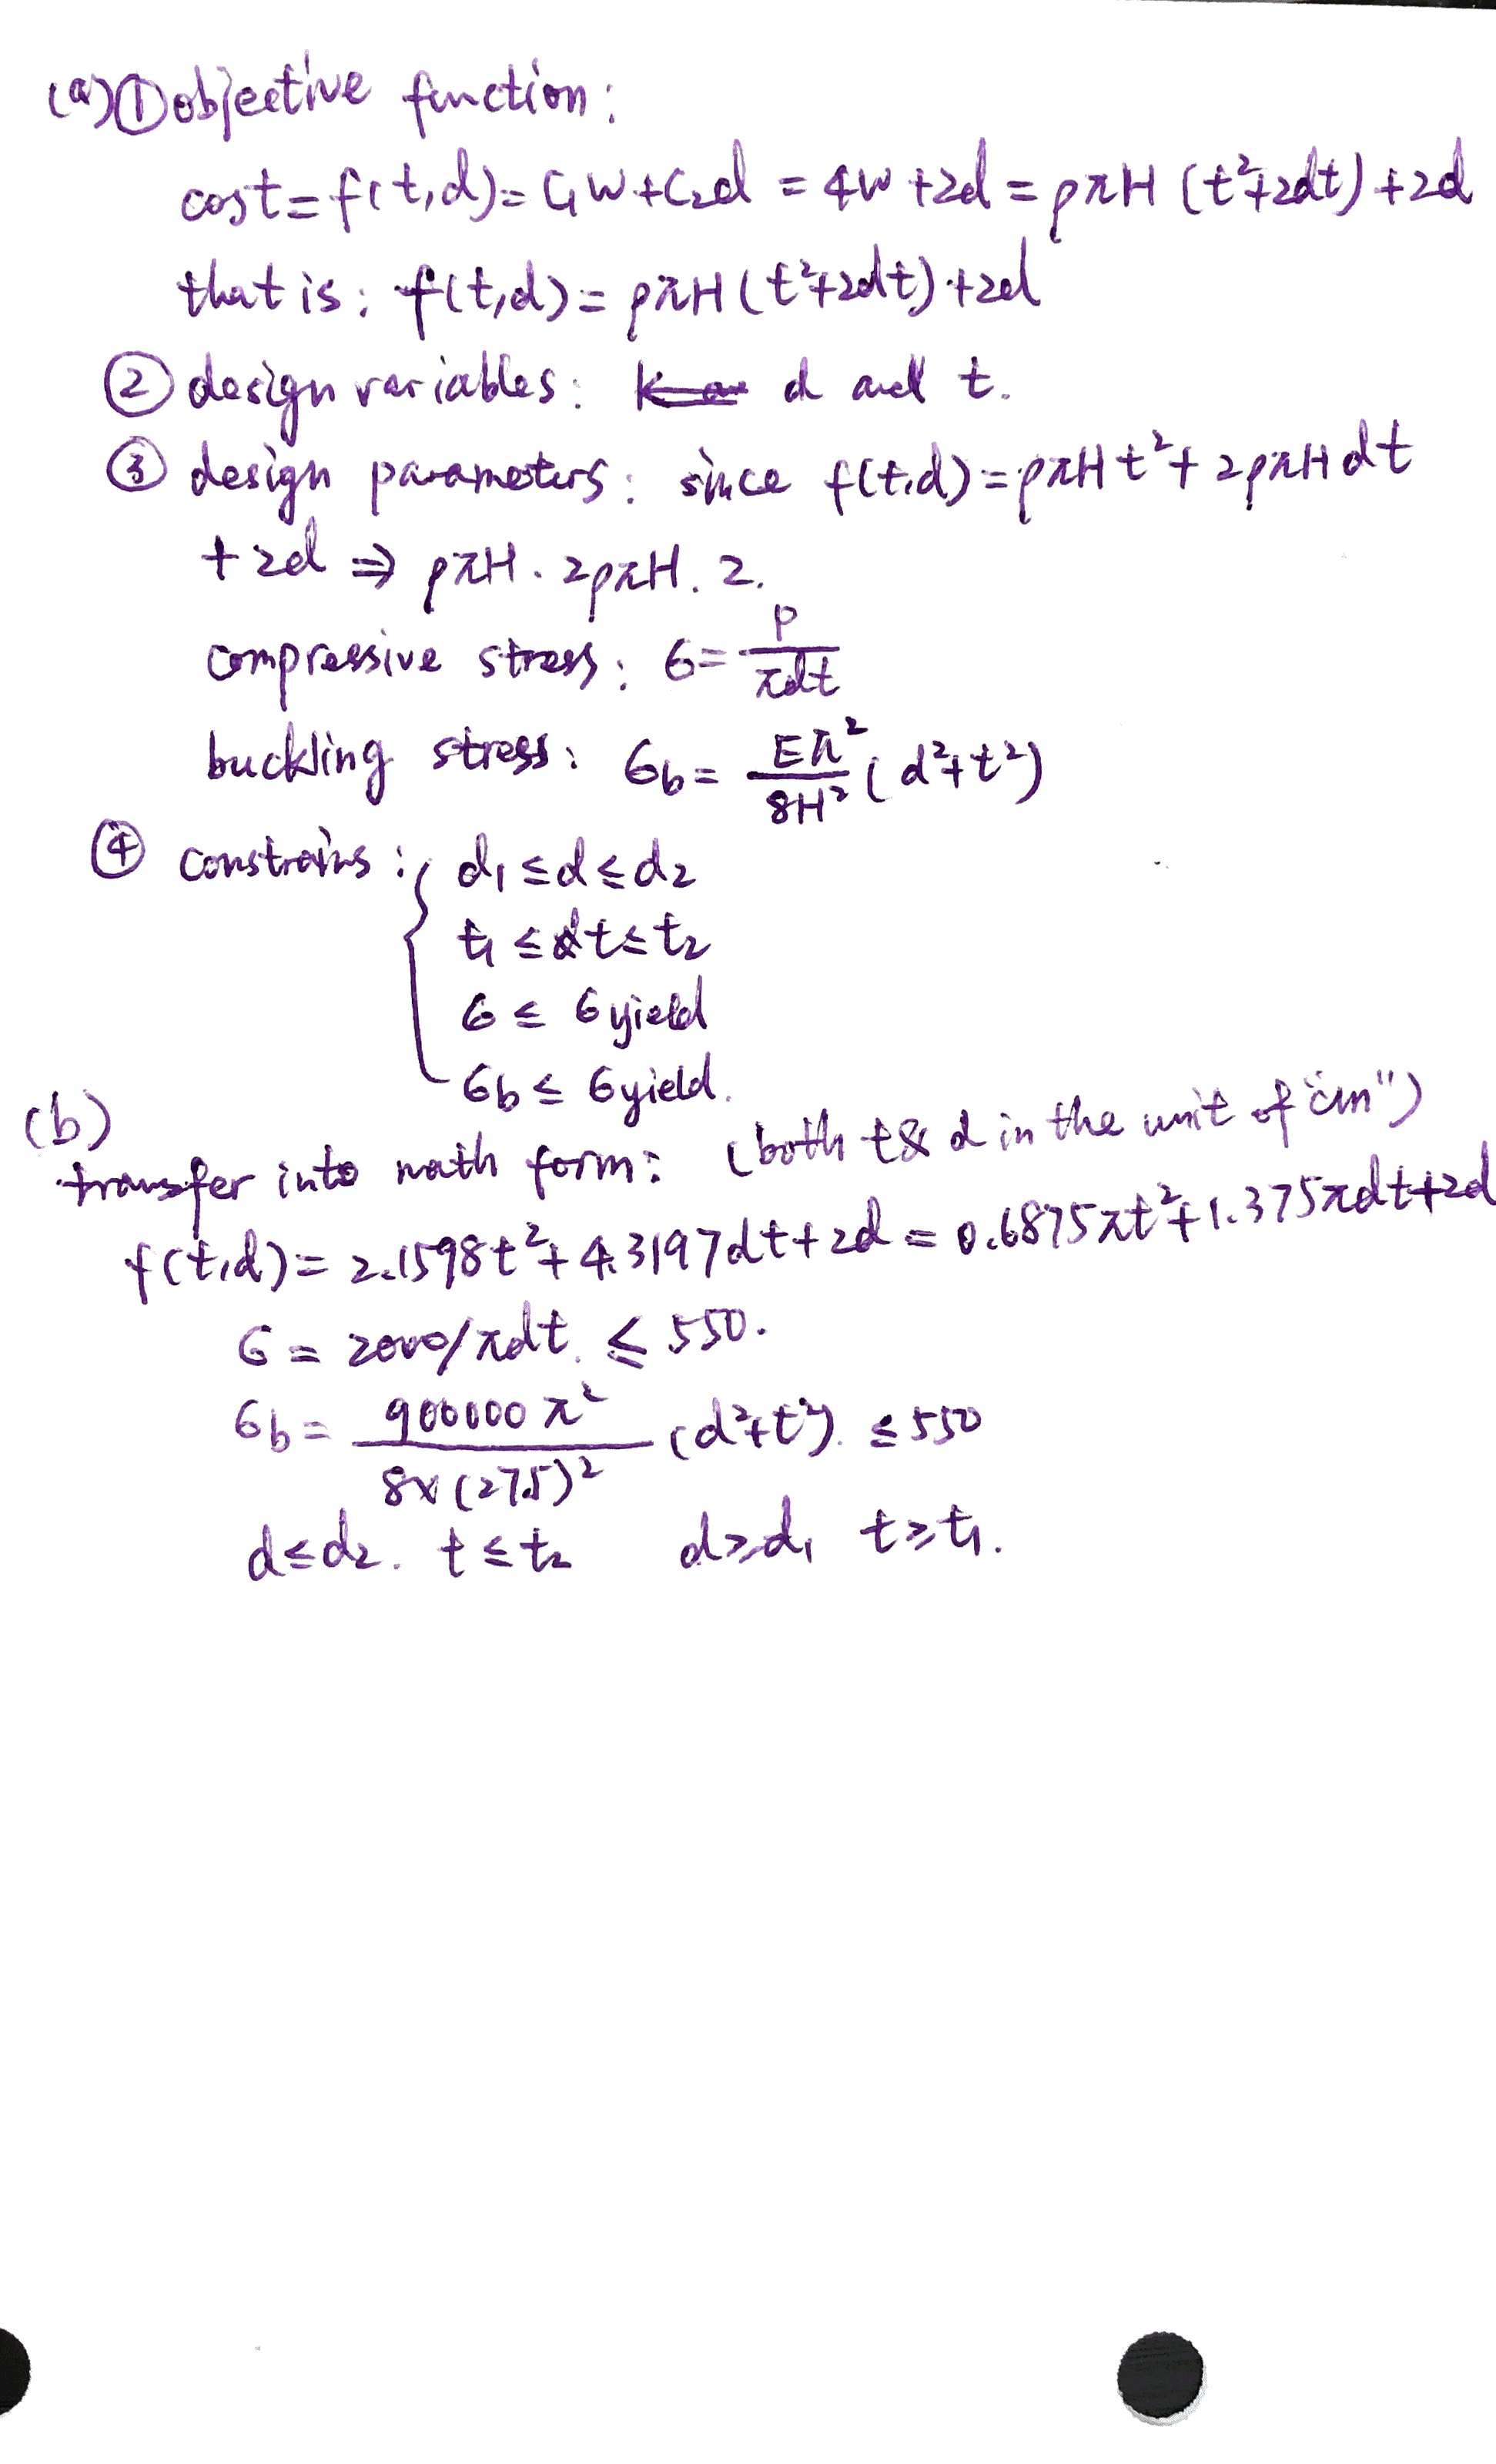 (a)① objective function:
cost = f(t,d) = C₁W + C₂d = 4W + 2d = ρπH (t²+2dt) + 2d
that is: f(t,d) = ρπH (t²+2dt) + 2d
② design variables: d and t.
③ design parameters: since f(t,d) = ρπHt² + 2ρπHdt
+ 2d ⇒ ρπH. 2ρπH. 2.
compressive stress: σ = P/πdt
buckling stress: σb = Eπ²/8H² (d²+t²)
④ constrains: { d₁ ≤ d ≤ d₂
t₁ ≤ t ≤ t₂
σ ≤ σyield
σb ≤ σyield.
(b)
transfer into math form: (both t & d in the unit of "cm")
f(t,d) = 2.1598t² + 4.3197dt + 2d = 0.6875πt² + 1.375πdt + 2d
σ = 2000/πdt. ≤ 550.
σb = 900000π²/8×(275)² (d²+t²). ≤ 550
d ≤ d₂. t ≤ t₂ d ≥ d₁ t ≥ t₁.